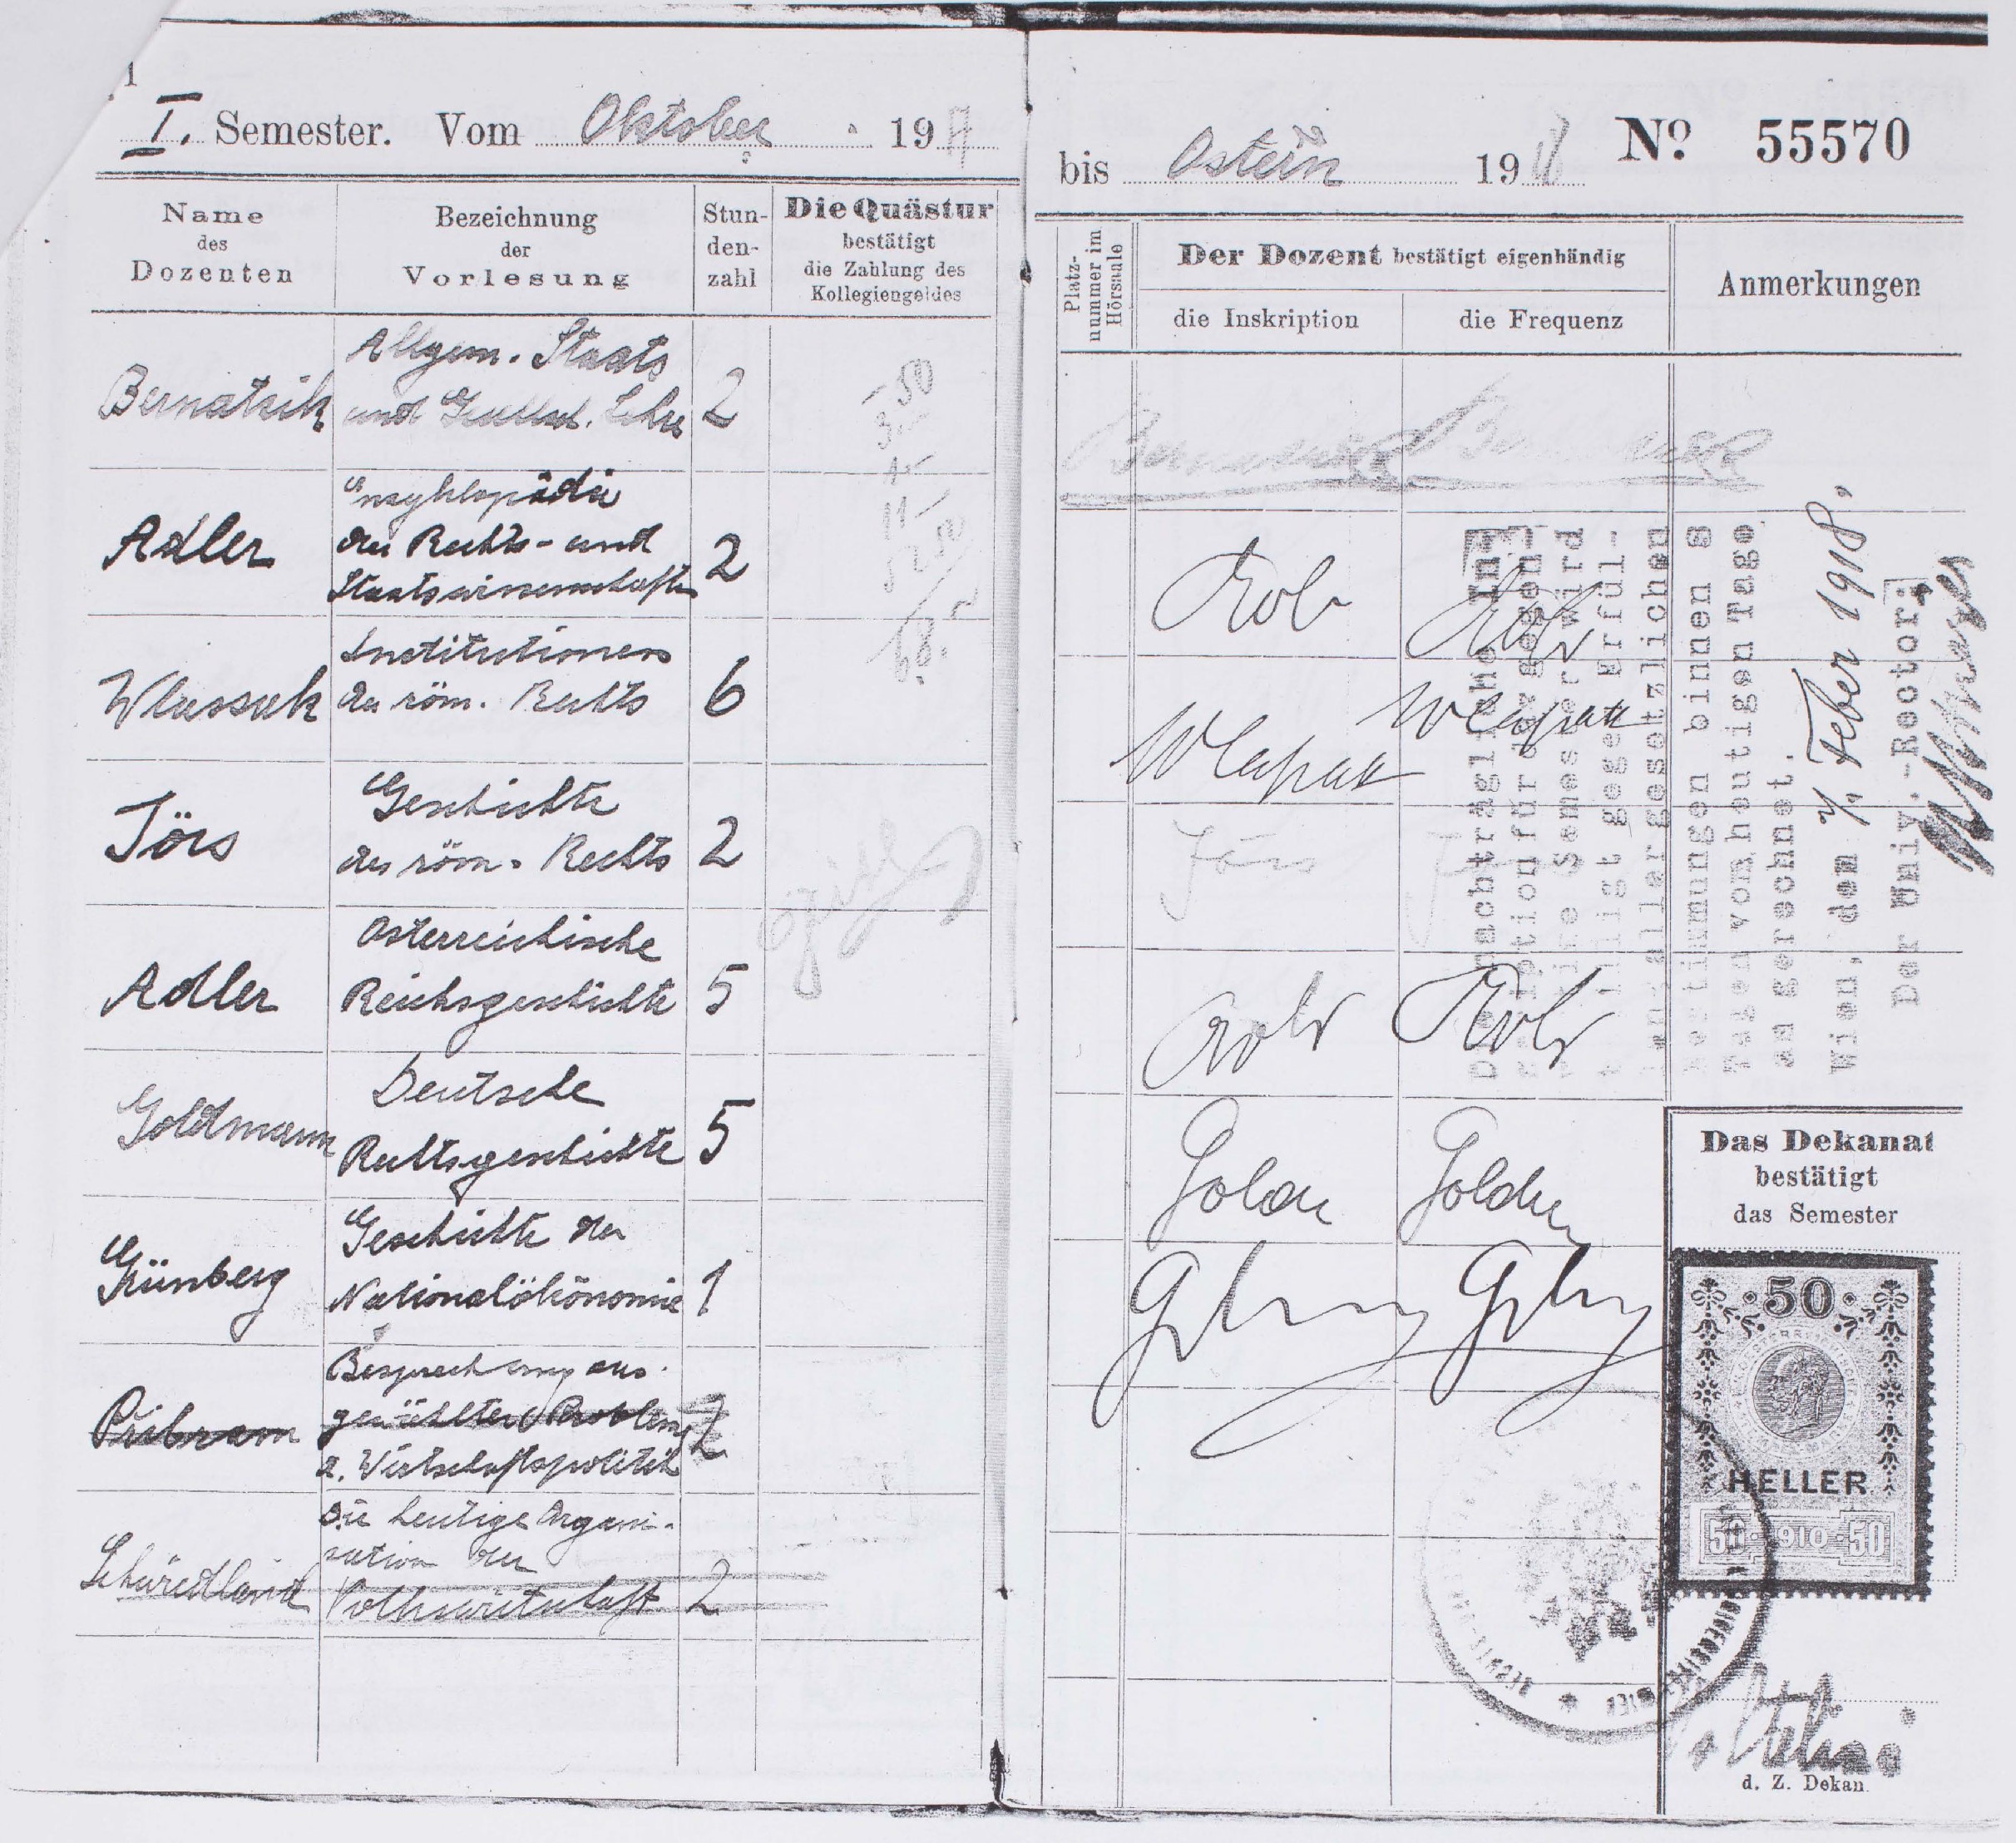 1
I. Semester. Vom Oktober 1917
Name
des
Dozenten
Bezeichnung
der
Vorlesung
Stun-
den-
zahl
Die Quästur
bestätigt
die Zahlung des
Kollegiengeldes
Bernatzik
Allgem. Staats
und Gesellsch. Lehre
2
Adler
Enzyklopädie
der Rechts- und
Staatswissenschaften
2
Wlassak
Institutionen
des röm. Rechts
6
Jörs
Geschichte
des röm. Rechts
2
Adler
Österreichische
Reichsgeschichte
5
Goldmann
Deutsche
Rechtsgeschichte
5
Grünberg
Geschichte der
Nationalökonomie
1
Pribram
Besprechung aus-
gewählter Probleme
d. Wirtschaftspolitik
2
Schwiedland
Die heutige Organi-
sation der
Volkswirtschaft
2
-50
3.-
11-
5250
68.-
bis Ostern 1918 № 55570
Platz-
nummer im
Hörsaale
Der Dozent bestätigt eigenhändig
die Inskription
die Frequenz
Anmerkungen
Wlassak Wlassak
Jörs
Die nachträgliche In-
skription für das gegen-
wärtige Semester wird
bewilligt gegen Erfül-
lung aller gesetzlichen
Bestimmungen binnen 8
Tagen vom heutigen Tage
an gerechnet.
Wien, den 7. Feber 1918.
Der Univ.-Rector:
Das Dekanat
bestätigt
das Semester
50
HELLER
50 1910 50
d. Z. Dekan.